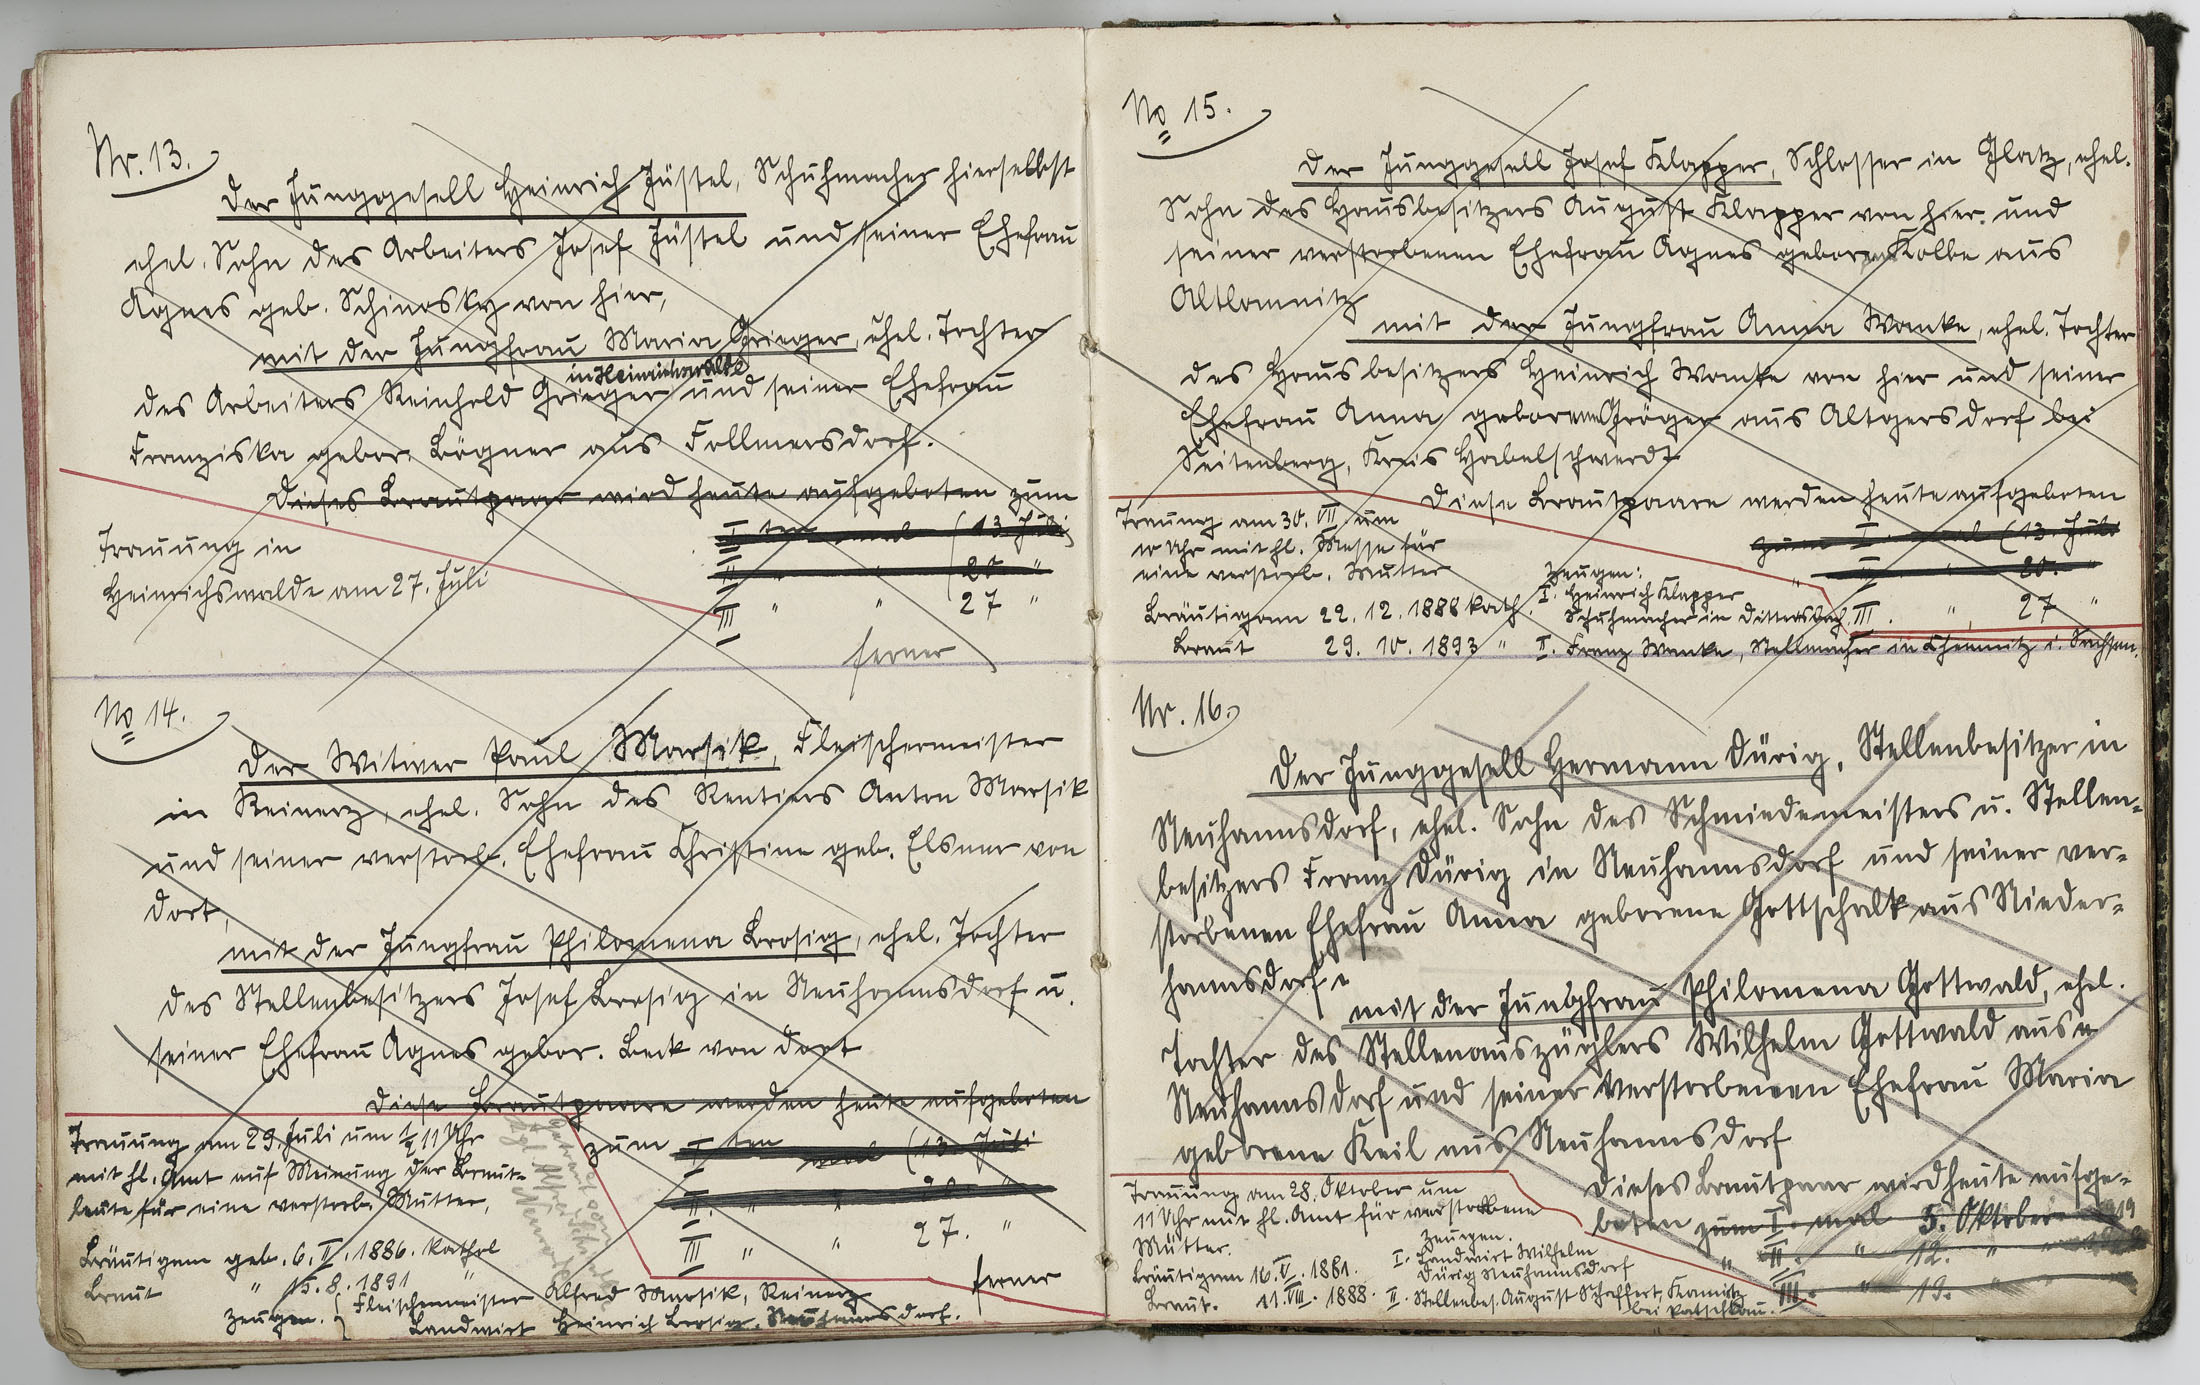 Nr. 13.
Der Junggesell Heinrich Jüstel, Schuhmacher hierselbst
ehel. Sohn des Arbeiters Josef Jüstel und seiner Ehefrau
Agnes geb. Schinosky von hier,
mit der Jungfrau Maria Grieger, ehel. Tochter
in Heinrichswalde
des Arbeiters Reinhold Grieger und seiner Ehefrau
Franziska gebor. Bögner aus Follmersdorf.
Dieses Brautpaar wird heute aufgeboten zum
I ten mal (13 Juli)
II " " (20 "
III " " 27 "
Trauung in
Heinrichswalde am 27. Juli
ferner
No 14.
Der Witwer Paul Marsik, Fleischermeister
in Reinerz, ehel. Sohn des Rentiers Anton Marsik
und seiner verstorb. Ehefrau Christine geb. Elsner von
dort,
mit der Jungfrau Philomena Brosig, ehel. Tochter
des Stellenbesitzers Josef Brosig in Neuhannsdorf u.
seiner Ehefrau Agnes gebor. Beck von dort
Diese Brautpaare werden heute aufgeboten
zum I ten mal (13. Juli
II. " " 20. "
III " " 27. "
Trauung am 29. Juli um ½ 11 Uhr
mit hl. Amt auf Meinung der Braut-
leute für eine verstorb. Mutter,
Bräutigam geb. 6. II. 1886. kathol
Braut " 15. 8. 1891 "
Zeugen. { Fleischermeister Alfred Marsik, Reinerz
Landwirt Heinrich Brosig, Neuhannsdorf.
ferner
No 15.
Der Junggesell Josef Klapper, Schlosser in Glatz, ehel.
Sohn des Hausbesitzers August Klapper von hier. und
seiner verstorbenen Ehefrau Agnes geborene Kolbe aus
Altlomnitz
mit der Jungfrau Anna Wanke, ehel. Tochter
des Hausbesitzers Heinrich Wanke von hier und seiner
Ehefrau Anna geborene Gröger aus Altgersdorf bei
Seitenberg, Kreis Habelschwerdt
Diese Brautpaare werden heute aufgeboten
zum I. mal (13. Juli
" II " 20. "
III. " 27 "
Trauung am 30. VII um
10 Uhr mit hl. Messe für
eine verstorb. Mutter
Bräutigam 22. 12. 1888 kath.
Braut 29. 10. 1893 "
Zeugen:
I. Heinrich Klapper
Schuhmacher in Dittersbach
II. Franz Wanke, Stellmacher in Chemnitz i. Sachsen.
Nr. 16.
Der Junggesell Hermann Dürig, Stellenbesitzer in
Neuhannsdorf, ehel. Sohn des Schmiedemeisters u. Stellen-
besitzers Franz Dürig in Neuhannsdorf und seiner ver-
storbenen Ehefrau Anna geborene Gottschalk aus Nieder-
hannsdorf
mit der Jungfrau Philomena Gottwald, ehel.
Tochter des Stellenauszüglers Wilhelm Gottwald aus
Neuhannsdorf und seiner verstorbenen Ehefrau Maria
geborene Keil aus Neuhannsdorf
Dieses Brautpaar wird heute aufge-
boten zum I. mal 5. Oktober 1919
" II. " 12. " "
III. " 19. " "
Trauung am 28. Oktober um
11 Uhr mit hl. Amt für verstorbene
Mütter.
Bräutigam 16. V. 1881.
Braut. 11. VIII. 1888.
Zeugen.
I. Landwirt Wilhelm
Dürig Neuhannsdorf
II. Stellenbes. August Schaffert, Kamnitz
bei Patschkau.